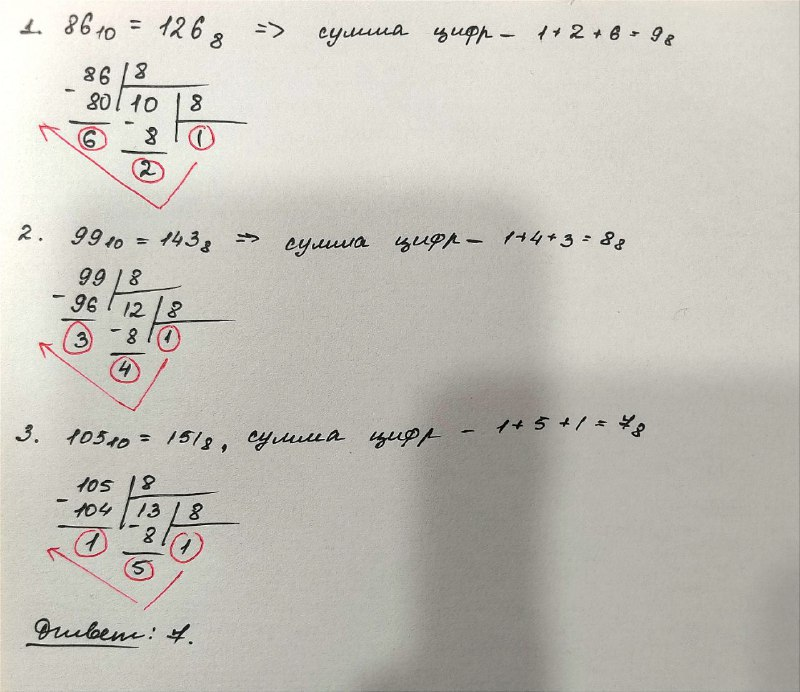 1. 86₁₀ = 126₈ => сумма цифр - 1+2+6=9₈
86 8
- 80 10 8
6 - 8 1
2
2. 99₁₀ = 143₈ => сумма цифр - 1+4+3=8₈
99 8
- 96 12 8
3 - 8 1
4
3. 105₁₀ = 151₈, сумма цифр - 1+5+1=7₈
105 8
- 104 13 8
1 - 8 1
5
Ответ: 7.